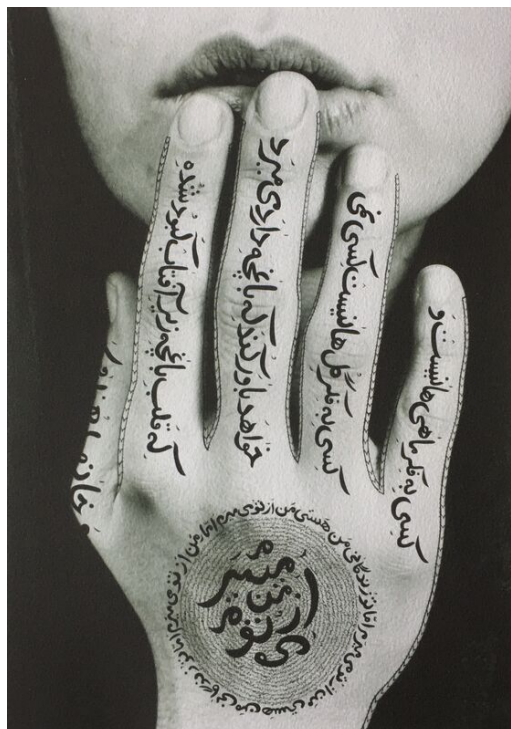 کسی به فکر ماهی ها نیست و
کسی به فکر گل ها نیست کسی نمی
خواهد باور کند که باغچه دارد می میرد
که قلب باغچه زیر آفتاب کبود شده
من از تو می میرم اما تو زندگانی من هستی من از تو می میرم اما تو زندگانی من هستی